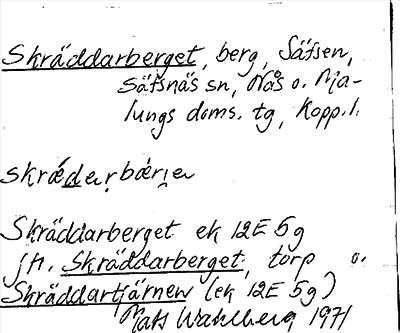 Skräddarberget, berg, Säfsen,
Säfsnäs sn, Nås o. Ma-
lungs doms. tg, Kopp. l.
skrǽdạrbǽrjẹ
Skräddarberget ek 12E 5g
jfr. Skräddarberget, torp o.
Skräddartjärnen (ek 12E 5g)
Mats Wahlberg 1971